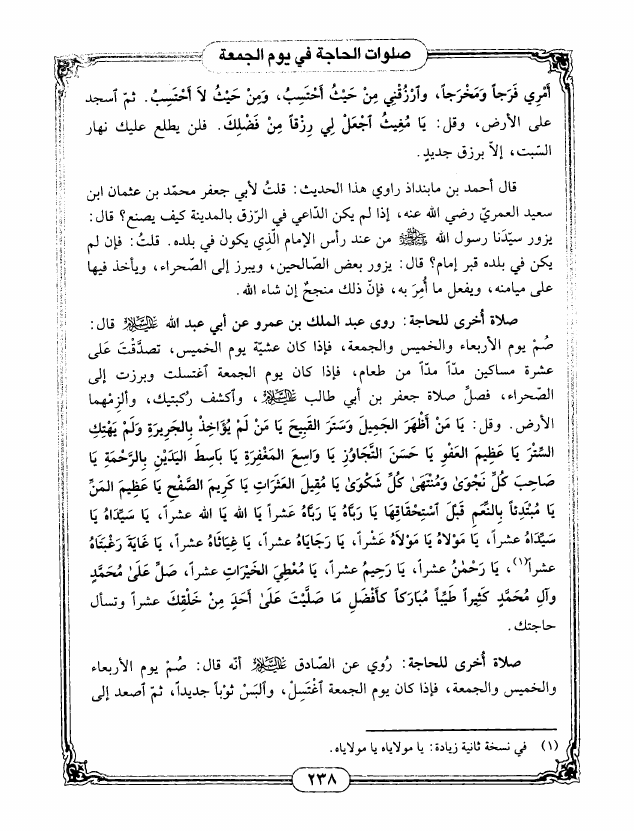 صلوات الحاجة في يوم الجمعة
أَمْرِي فَرَجاً وَمَخْرَجاً، وٱرْزُقْنِي مِنْ حَيْثُ أَحْتَسِبُ، وَمِنْ حَيْثُ لاَ أَحْتَسِبُ. ثمّ ٱسجد
على الأرض، وقل: يَا مُغِيثُ ٱجْعَلْ لِي رِزْقاً مِنْ فَضْلِكَ. فلن يطلع عليك نهار
السّبت، إلاّ برزق جديد.
قال أحمد بن مابنداذ راوي هذا الحديث: قلتُ لأبي جعفر محمّد بن عثمان ابن
سعيد العمريّ رضي الله عنه، إذا لم يكن الدّاعي في الرّزق بالمدينة كيف يصنع؟ قال:
يزور سيّدَنا رسول الله ﷺ من عند رأس الإمام الّذي يكون في بلده. قلتُ: فإن لم
يكن في بلده قبر إمام؟ قال: يزور بعض الصّالحين، ويبرز إلى الصّحراء، ويأخذ فيها
على ميامنه، ويفعل ما أُمِرَ به، فإنّ ذلك منجحٌ إن شاء الله.
صلاة أُخرى للحاجة: روى عبد الملك بن عمرو عن أبي عبد الله عليه السلام قال:
صُمْ يوم الأربعاء والخميس والجمعة، فإذا كان عشيّة يوم الخميس، تصدَّقْتَ عَلى
عشرة مساكين مدّاً مدّاً من طعام، فإذا كان يوم الجمعة ٱغتسلت وبرزت إلى
الصّحراء، فصلِّ صلاة جعفر بن أبي طالب عليه السلام، وٱكشف رُكبتيك، وألزِمْهما
الأرض. وقل: يَا مَنْ أَظْهَرَ الجَمِيلَ وَسَتَرَ القَبِيحَ يَا مَنْ لَمْ يُؤَاخِذْ بِالجَرِيرَةِ وَلَمْ يَهْتِكِ
السِّتْرَ يَا عَظِيمَ العَفْوِ يَا حَسَنَ التَّجَاوُزِ يَا وَاسِعَ المَغْفِرَةِ يَا بَاسِطَ اليَدَيْنِ بِالرَّحْمَةِ يَا
صَاحِبَ كُلِّ نَجْوَىٰ وَمُنْتَهَىٰ كُلِّ شَكْوَىٰ يَا مُقِيلَ العَثَرَاتِ يَا كَرِيمَ الصَّفْحِ يَا عَظِيمَ المَنِّ
يَا مُبْتَدِئاً بِالنِّعَمِ قَبْلَ ٱسْتِحْقَاقِهَا يَا رَبَّاهُ يَا رَبَّاهُ عَشراً يَا الله يَا الله عشراً، يَا سَيِّدَاهُ يَا
سَيِّدَاهُ عشراً، يَا مَوْلاهُ يَا مَوْلاَهُ عَشْراً، يَا رَجَايَاهُ عشراً، يَا غِيَاثَاهُ عشراً، يَا غَايَةَ رَغْبَتَاهُ
عشراً(١)، يَا رَحْمٰنُ عشراً، يَا رَحِيمُ عشراً، يَا مُعْطِيَ الخَيْرَاتِ عشراً، صَلِّ عَلىٰ مُحَمَّدٍ
وآلِ مُحَمَّدٍ كَثِيراً طَيِّباً مُبَارَكاً كأَفْضَلِ مَا صَلَّيْتَ عَلىٰ أَحَدٍ مِنْ خَلْقِكَ عشراً وتسأل
حاجتك.
صلاة أُخرى للحاجة: رُوي عن الصّادق عليه السلام أنّه قال: صُمْ يوم الأربعاء
والخميس والجمعة، فإذا كان يوم الجمعة ٱغْتَسِلْ، وٱلبَسْ ثوْباً جديداً، ثمّ ٱصعد إلى
(١) في نسخة ثانية زيادة: يا مولاياه يا مولاياه.
٢٣٨